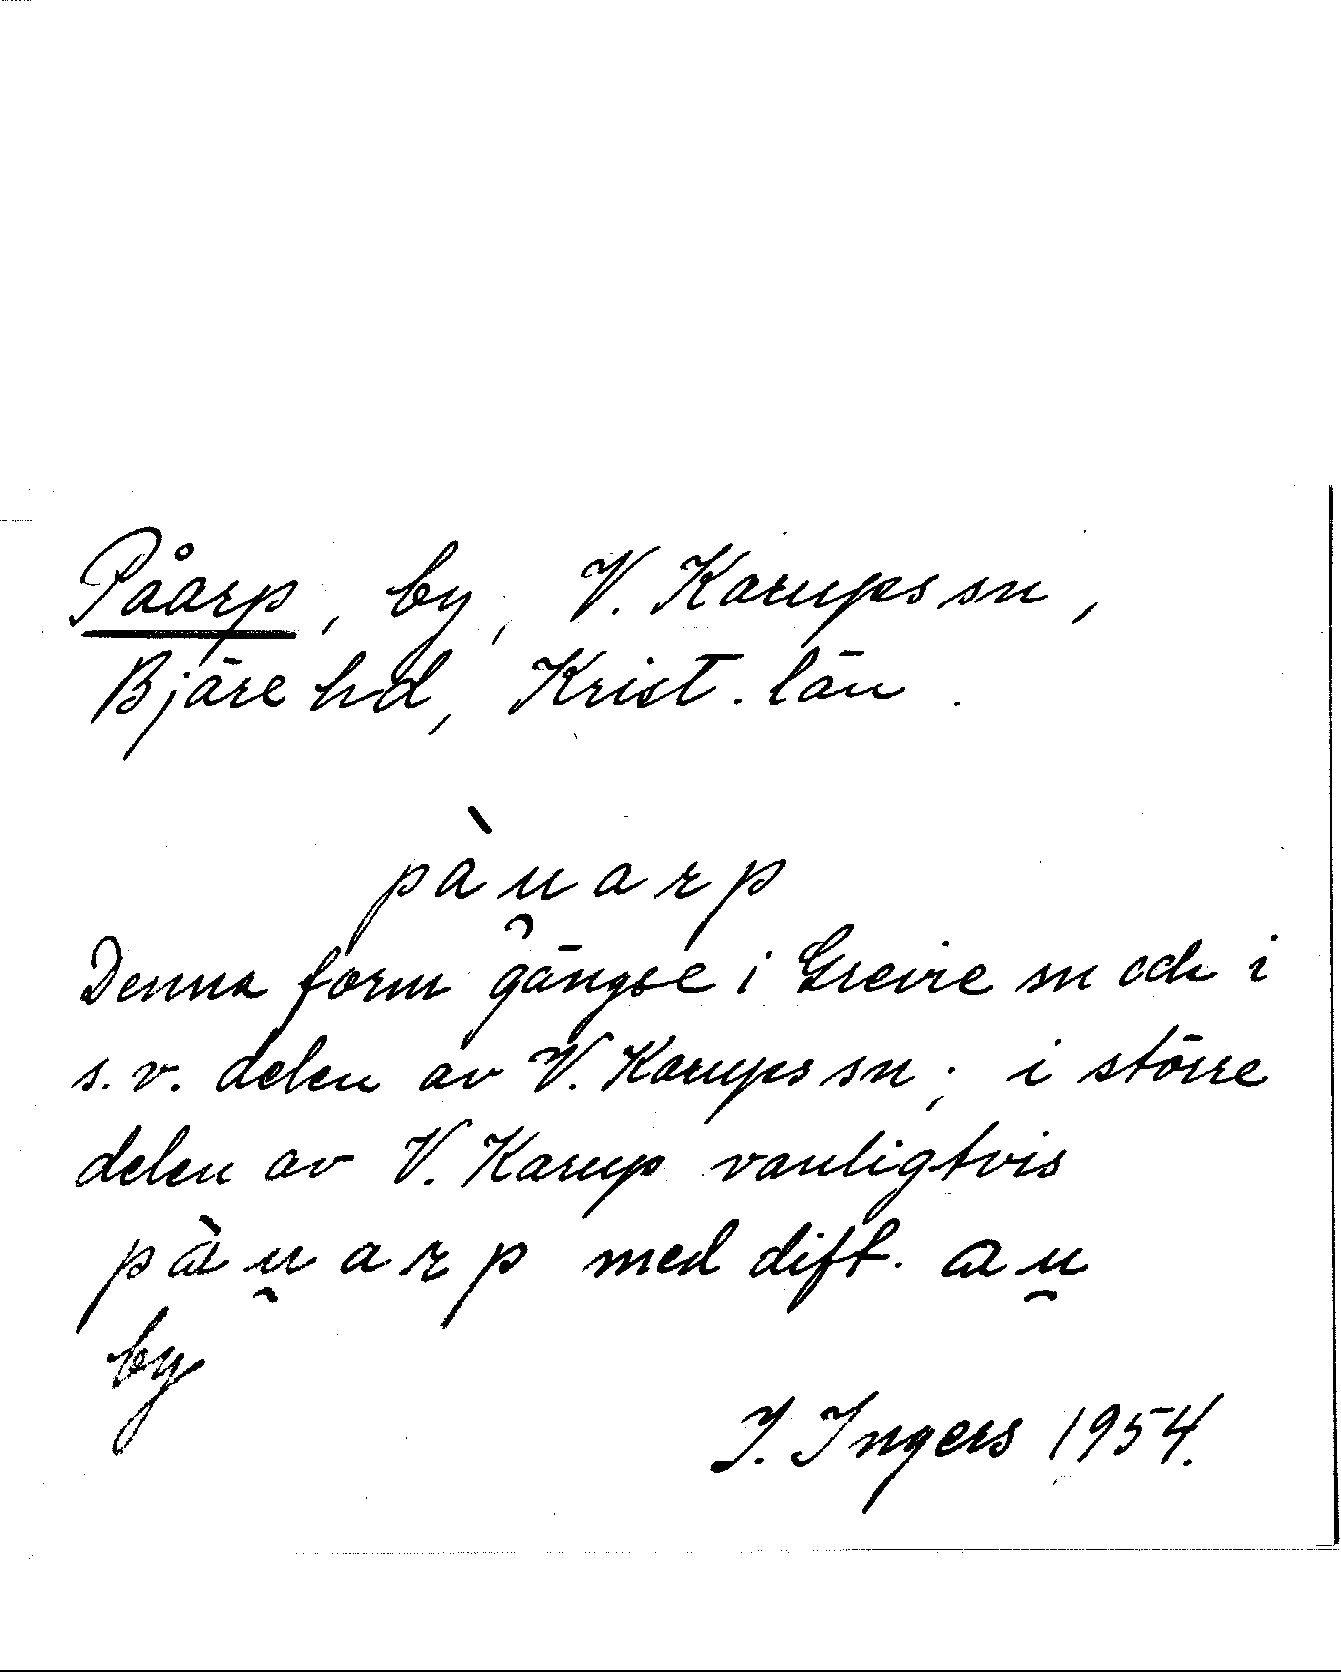 Påarp, by, V. Karups sn,
Bjäre hd, Krist. län.
pàu̯arp
Denna form gängse i Grevie sn och i
s.v. delen av V. Karups sn; i större
delen av V. Karup vanligtvis
pɑ̀u̯arp med dift. ɑu̯
by
I. Ingers 1954.